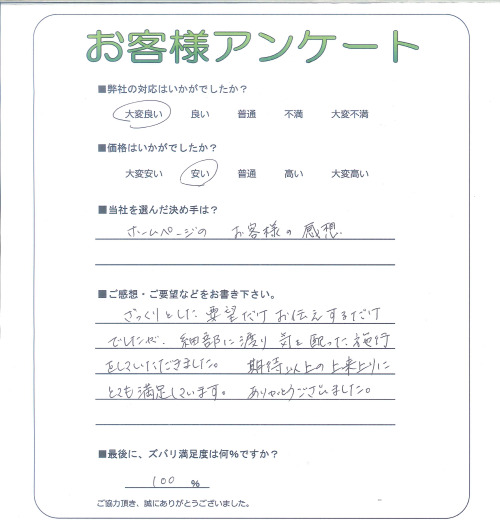 お客様アンケート
■弊社の対応はいかがでしたか？
大変良い 良い 普通 不満 大変不満
■価格はいかがでしたか？
大変安い 安い 普通 高い 大変高い
■当社を選んだ決め手は？
ホームページの お客様の感想.
■ご感想・ご要望などをお書き下さい。
ざっくりとした要望だけお伝えするだけ
でしたが、細部に渡り気を配った施行
をしていただきました。 期待以上の上来上りに
とても満足しています。 ありがとうございました。
■最後に、ズバリ満足度は何％ですか？
100 ％
ご協力頂き、誠にありがとうございました。